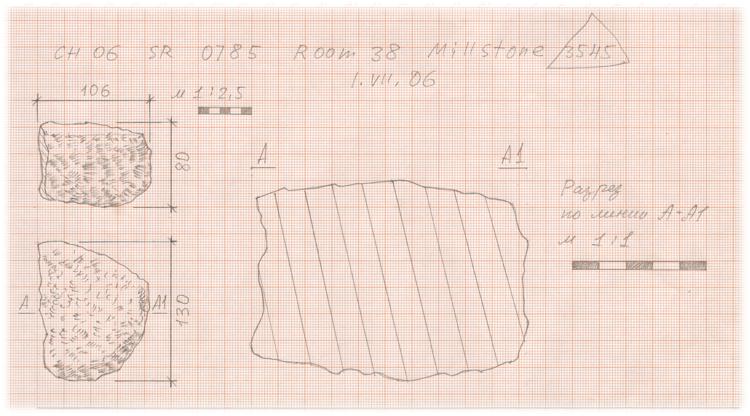 CH 06 SR 0785 Room 38 Millstone 3545
1.VII.06
106
м 1:2,5
80
А А1
Разрез
по линии А-А1
м 1:1
А А1
130